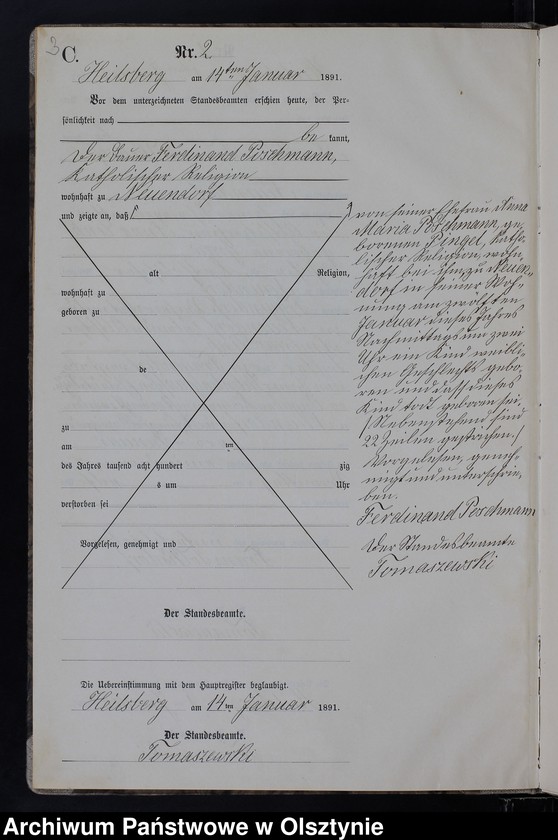 3
C.
Nr. 2
Heilsberg am 14ten Januar 1891.
Vor dem unterzeichneten Standesbeamten erschien heute, der Per-
sönlichkeit nach
be kannt,
der Bauer Ferdinand Poschmann,
Katholischer Religion
wohnhaft zu Neuendorf
und zeigte an, daß
alt Religion,
wohnhaft zu
geboren zu
de
zu
am ten
des Jahres tausend acht hundert zig
s um Uhr
verstorben sei
Vorgelesen, genehmigt und
von seiner Ehefrau Anna
Maria Poschmann, ge-
borenen Pingel, Katho-
lischer Religion, wohn-
haft bei ihm, zu Neuen-
dorf in seiner Woh-
nung am zwölften
Januar dieses Jahres
Nachmittags um zwei
Uhr ein Kind weibli-
chen Geschlechts gebo-
ren und daß dieses
Kind todt geboren sei.
/Nebenstehend sind
22 Zeilen gestrichen./
Vorgelesen, geneh-
migt und unterschrie-
ben.
Ferdinand Poschmann
Der Standesbeamte
Tomaszewski
Der Standesbeamte.
Die Uebereinstimmung mit dem Hauptregister beglaubigt.
Heilsberg am 14ten Januar 1891.
Der Standesbeamte.
Tomaszewski
Archiwum Państwowe w Olsztynie